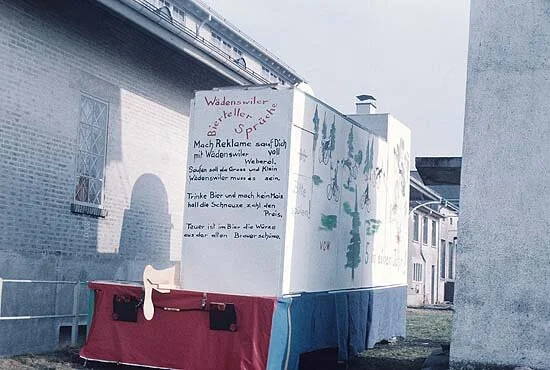 Wädenswiler
Bierteller
Sprüche
Mach Reklame sauf Dich
mit Wädenswiler voll
Weberöl.
Saufen soll da Gross und Klein
Wädenswiler muss es sein.
Trinke Bier und mach kein Mais
halt die Schnauze, zahl den
Preis.
Teuer ist im Bier die Würze
aus der alten Brauerschürze.
vom
5